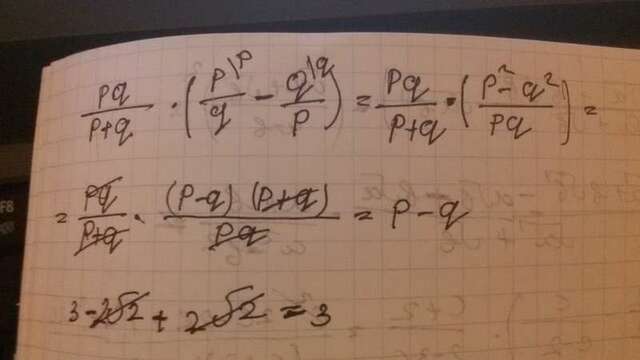 pq/(p+q) · (p\p/q − q\q/p) = pq/(p+q) · ((p²−q²)/pq) =
= pq/(p+q) · (p−q)(p+q)/pq = p−q
3−2√2 + 2√2 = 3
F8